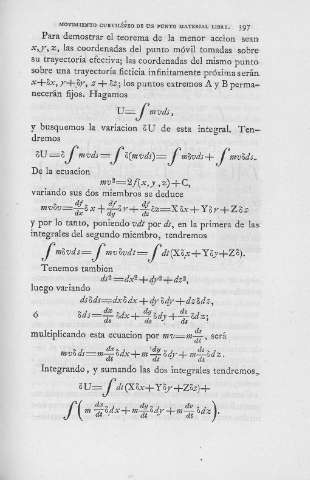 MOVIMIENTO CURVILÍNEO DE UN PUNTO MATERIAL LIBRE. 397
Para demostrar el teorema de la menor accion sean
x, y, z, las coordenadas del punto móvil tomadas sobre
su trayectoria efectiva; las coordenadas del mismo punto
sobre una trayectoria ficticia infinitamente próxima serán
x+δx, y+δy, z+δz; los puntos extremos A y B perma-
necerán fijos. Hagamos
U=∫mvds,
y busquemos la variacion δU de esta integral. Ten-
dremos
δU=δ∫mvds=∫δ(mvds)=∫mδvds+∫mvδds.
De la ecuacion
mv²=2f(x,y,z)+C,
variando sus dos miembros se deduce
mvδv=df/dx δx+df/dy δy+df/dz δz=Xδx+Yδy+Zδz
y por lo tanto, poniendo vdt por ds, en la primera de las
integrales del segundo miembro, tendremos
∫mδvds=∫mvδvdt=∫dt(Xδx+Yδy+Zδ).
Tenemos tambien
ds²=dx²+dy²+dz²,
luego variando
dsδds=dxδdx+dyδdy+dzδdz,
ó δds=dx/ds δdx+dy/ds δdy+dz/ds δdz;
multiplicando esta ecuacion por mv=m ds/dt, será
mvδds=m dx/dt δdx+m dy/dt δdy+m dz/dt δdz.
Integrando, y sumando las dos integrales tendremos.
δU=∫dt(Xδx+Yδy+Zδz)+
∫(m dx/dt δdx+m dy/dt δdy+m dz/dt δdz).